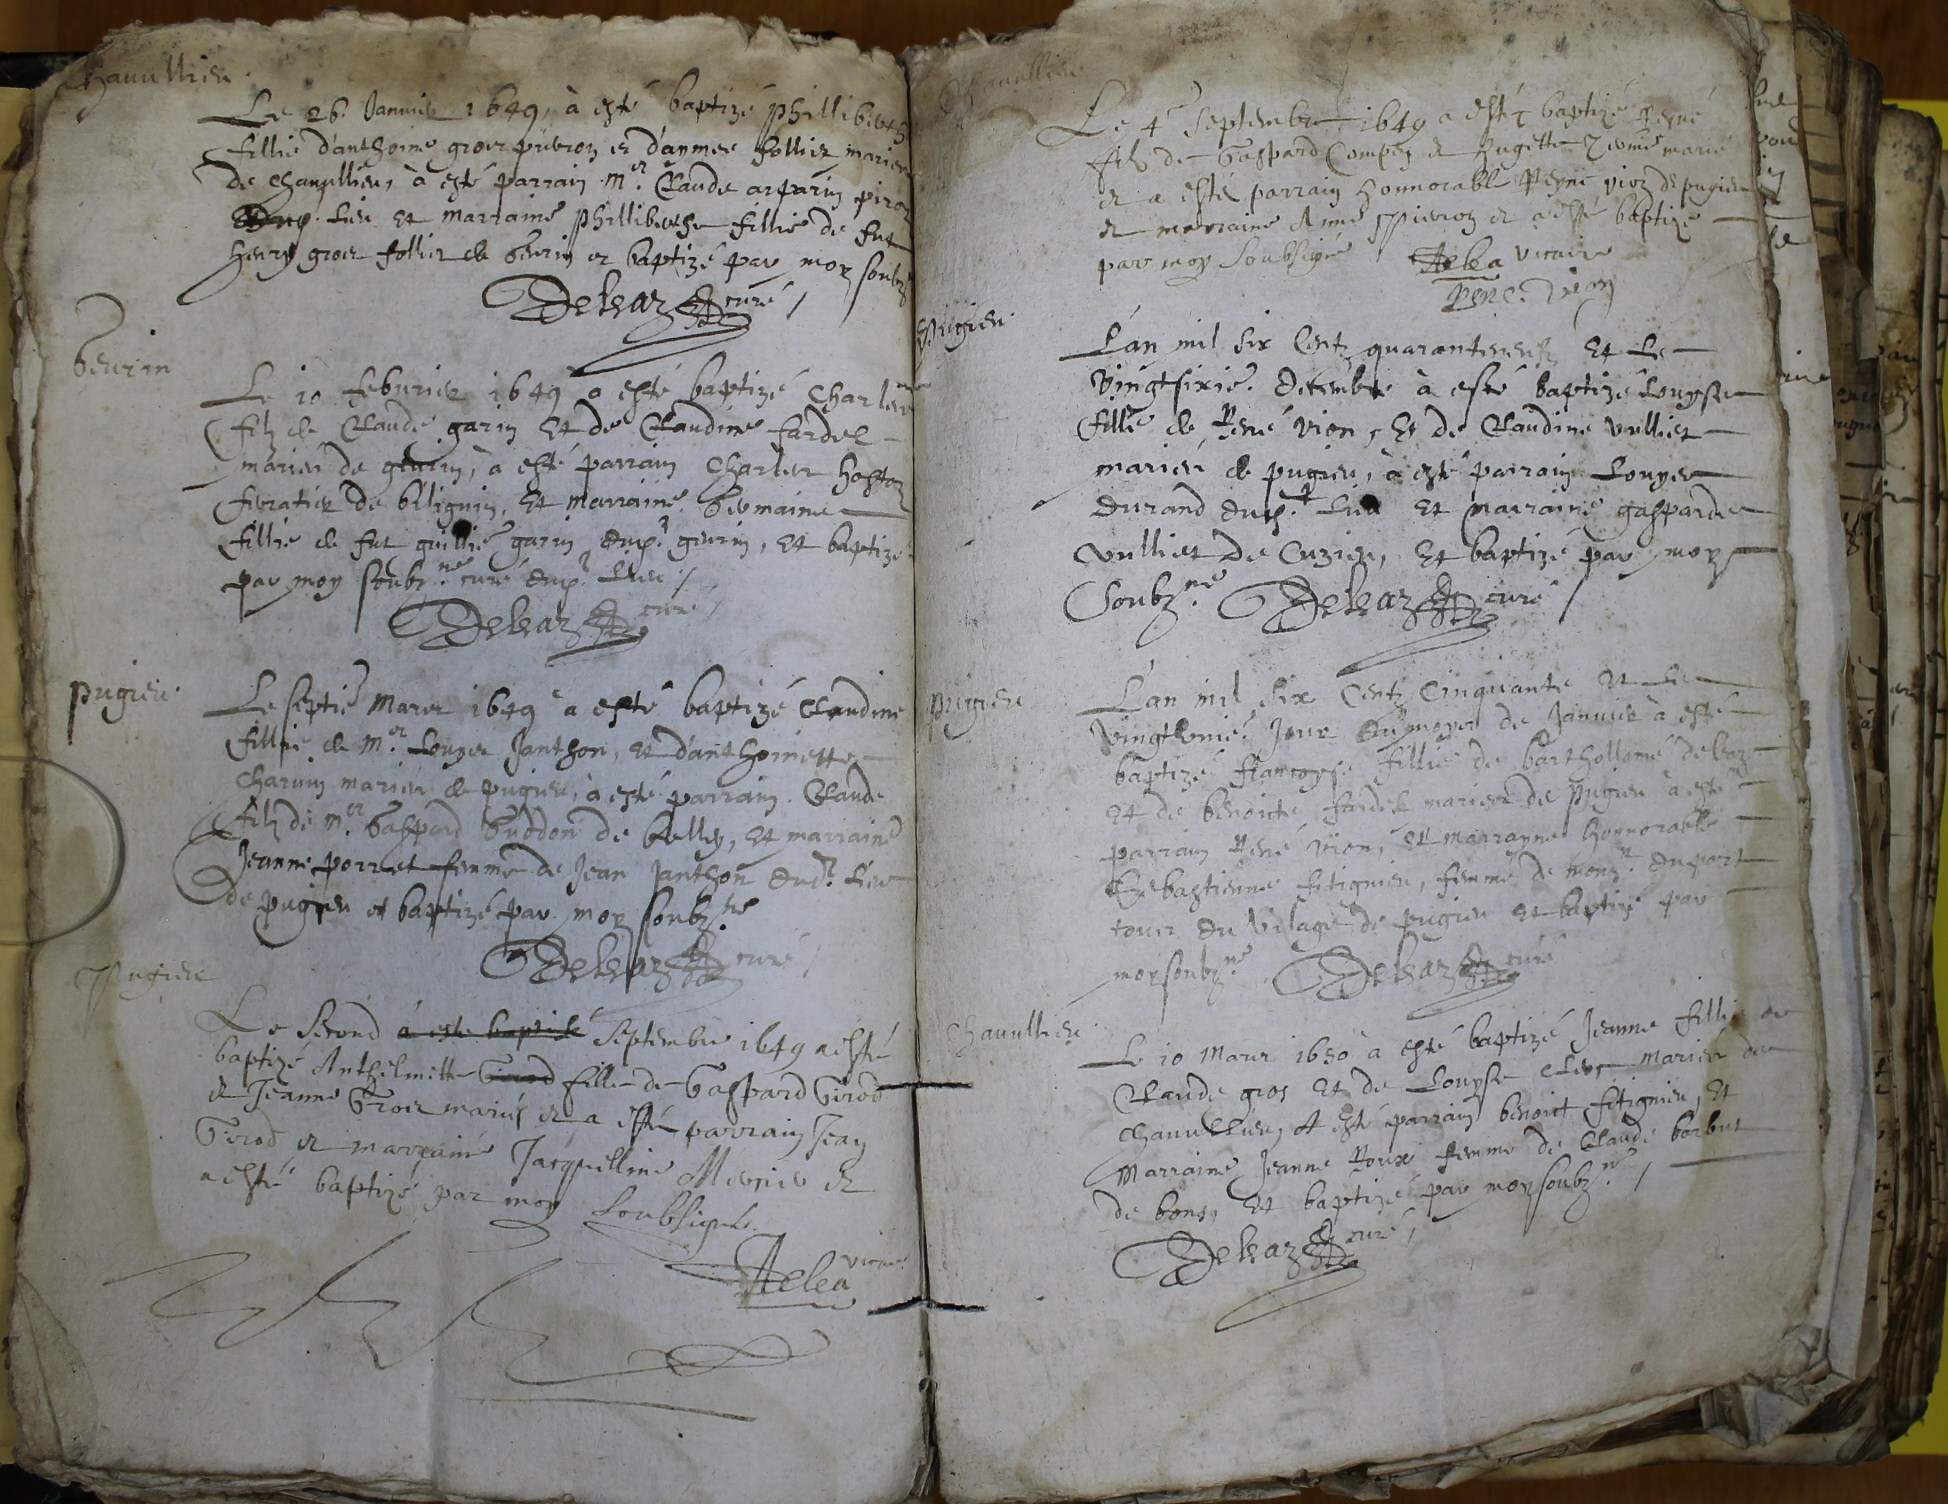 Chavullieu.
Le 26. Janvier 1649, à esté baptizé phillibert
fillie d'anthoine groz et d'aymee follier mariez
de chavullieu, à esté parrain M.er Claude
lieu et marraine philliberthe fillie de fut
henry groz follier de Geurin et baptizé par moy soubz
Deleaz curé /
Geurin
Le 10 febvrier 1649 a esté baptizé Charles
filz de Claude garin et de Claudine fardel
mariez de geurin, à esté parrain Charles
de bélignin, et marraine Germaine
fillie de fut guillie garin dup.t geurin, et baptizé
par moy soubz.né curé dup.t lieu /
Deleaz curé /
pugieu.
Le septié Mars 1649 a esté baptizé Claudine
fillie de M.er Louys Janthon, et d'anthoinette
Charvin mariez de pugieu, à esté parrain Claude
filz de M.er Gaspard Guddon de belley, et marraine
Jeanne porret femme de Jean Janthon dud.t lieu
de pugieu et baptizé par moy soubz.né
Deleaz curé /
Pugieu
Le second à esté baptisé Septembre 1649 a esté
baptizé Anthelmette Girod fille de Gaspard Girod
et Jeanne Groz mariés et a esté parrain Jean
Girod et marraine Jacquelline Mernier et
a esté baptizé par moy soubsigné.
Aelea vicaire
Chavullieu
Le 4e Septembre 1649 a esté baptizé René
filz de Gaspard Compey et hugette mariés
et a esté parrain honnorable René vion de pugieu
et marraine Anne Pierron et a esté baptizé
par moy soubsigné Aelea vicaire
Rene. Vion
Pugieu.
L'an mil six Centz quaranteneufz et le
vingtsixié. decembre à esté baptizé Louyse
fillie de René vion, et de Claudine vulliet
mariez de pugieu, à esté parrain Louys
durand dud.t lieu et marraine gasparde
vulliet de Cuzieu, et baptizé par moy
soubz.né Deleaz curé /
Pugieu
L'an mil six Centz Cinquante et le
vingtunié. Jour du moys de Janvier à esté
baptizé françoyse fillie de barthollomé deleaz
et de benoicte fardel mariez de Pugieu à esté
parrain René vion, et marrayne honnorable
Sebastienne fitignieu, femme de monz.r duport
tour du vilage de pugieu et baptizé par
moy soubz.né Deleaz curé
Chavullieu
Le 10 Mars 1650 à esté baptizé Jeanne fillie de
Claude gros et de Louyse mariez de
chavullieu, à esté parrain benoict fitignieu, et
Marraine Jeanne Roux femme de Claude barbut
de bons, et baptizé par moy soubz.né /
Deleaz curé /